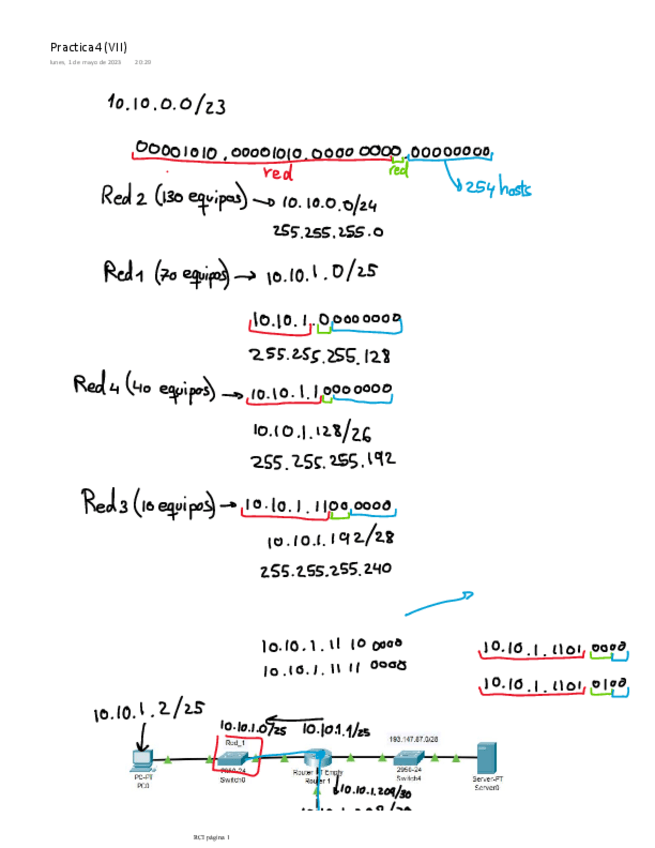 Practica4 (VII)
lunes, 1 de mayo de 2023 20:20
10.10.0.0/23
00001010.00001010.00000000.00000000
red
red
254 hosts
Red 2 (130 equipos) → 10.10.0.0/24
255.255.255.0
Red 1 (70 equipos) → 10.10.1.0/25
10.10.1.00000000
255.255.255.128
Red 4 (40 equipos) → 10.10.1.10000000
10.10.1.128/26
255.255.255.192
Red 3 (10 equipos) → 10.10.1.11000000
10.10.1.192/28
255.255.255.240
10.10.1.11 10 0000
10.10.1.11 11 0000
10.10.1.1101 0000
10.10.1.1101 0100
10.10.1.2/25
10.10.1.0/25
10.10.1.1/25
Red_1
193.147.87.0/28
PC-PT
PC0
2950-24
Switch0
Router-PT Empty
Router 1
2950-24
Switch4
Server-PT
Server0
10.10.1.209/30
RCI página 1